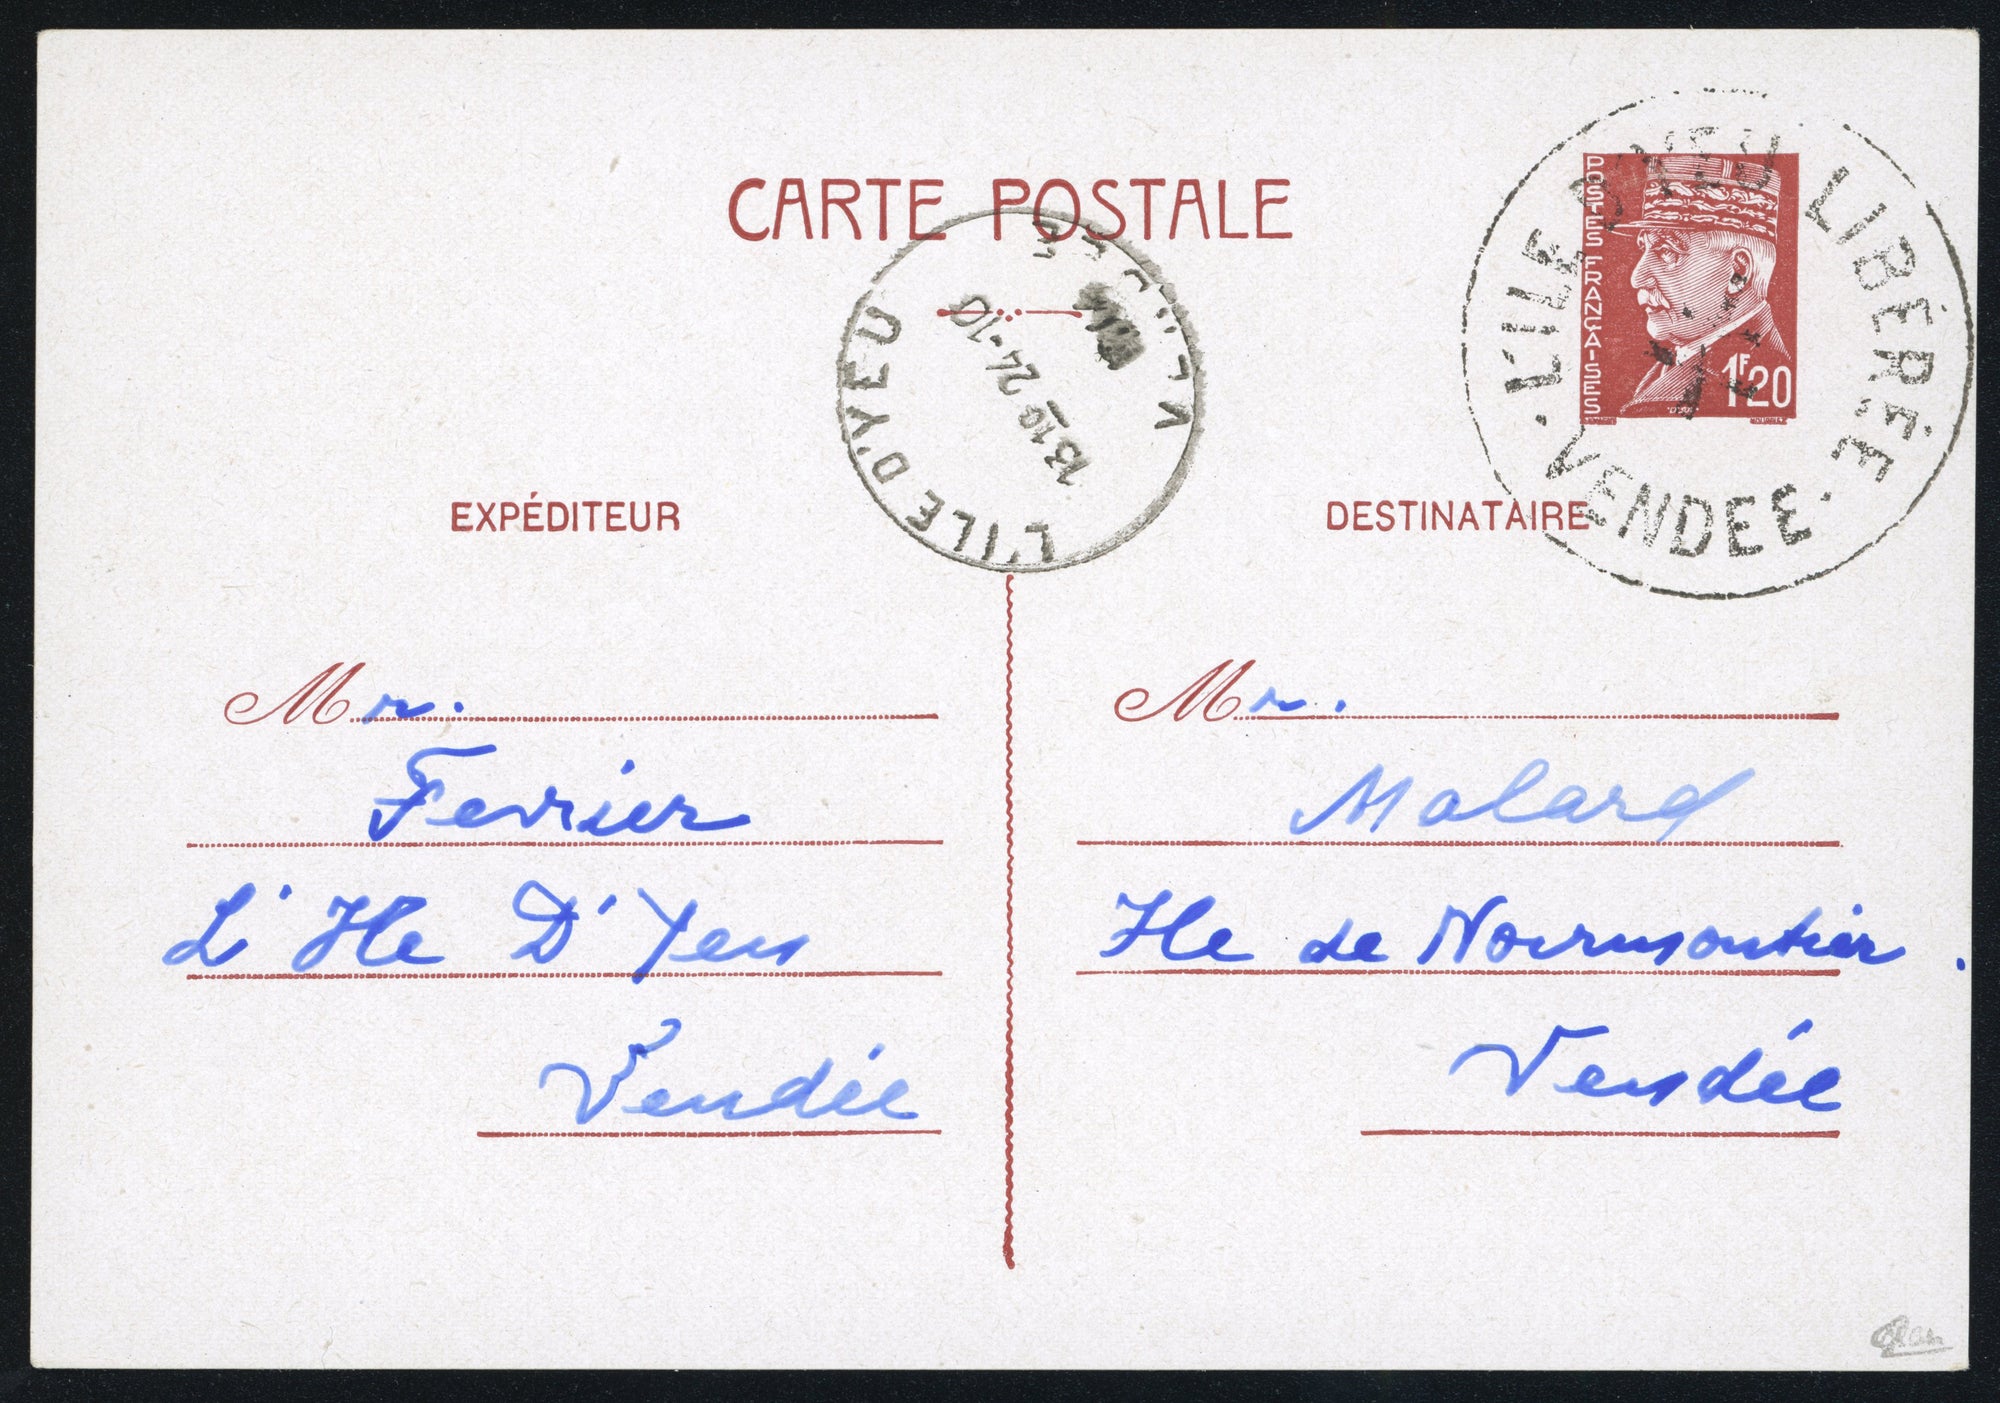 CARTE POSTALE
POSTES FRANÇAISES
1F20
L'ILE D'YEU LIBÉRÉE
· VENDEE ·
L'ILE D'YEU
VENDEE
13 10 24-10
EXPÉDITEUR
Mr.
Fevrier
L'Ile D'Yeu
Vendée
DESTINATAIRE
Mr.
Malard
Ile de Noirmoutier.
Vendée